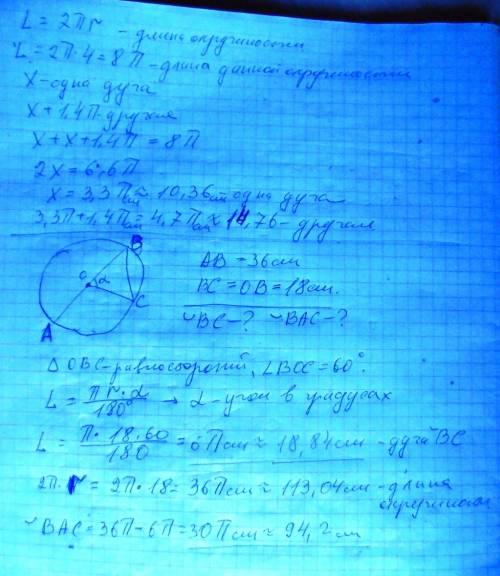 L = 2πr - длина окружности
L = 2π·4 = 8π - длина данной окружности
X - одна дуга
X + 1,4π - другая
X + X + 1,4π = 8π
2X = 6,6π
X = 3,3π см ≈ 10,36 см - одна дуга
3,3π + 1,4π = 4,7π см ≈ 14,76 - другая
B
O α
C
A
AB = 36 см
BC = OB = 18 см.
◡BC - ? ◡BAC - ?
△ OBC - равносторонний, ∠BOC = 60°.
L = πr·α / 180° → α - угол в градусах
L = π·18·60 / 180 = 6π см ≈ 18,84 см - дуга BC
2π·r = 2π·18 = 36π см ≈ 113,04 см - длина
окружности
◡BAC = 36π - 6π = 30π см ≈ 94,2 см